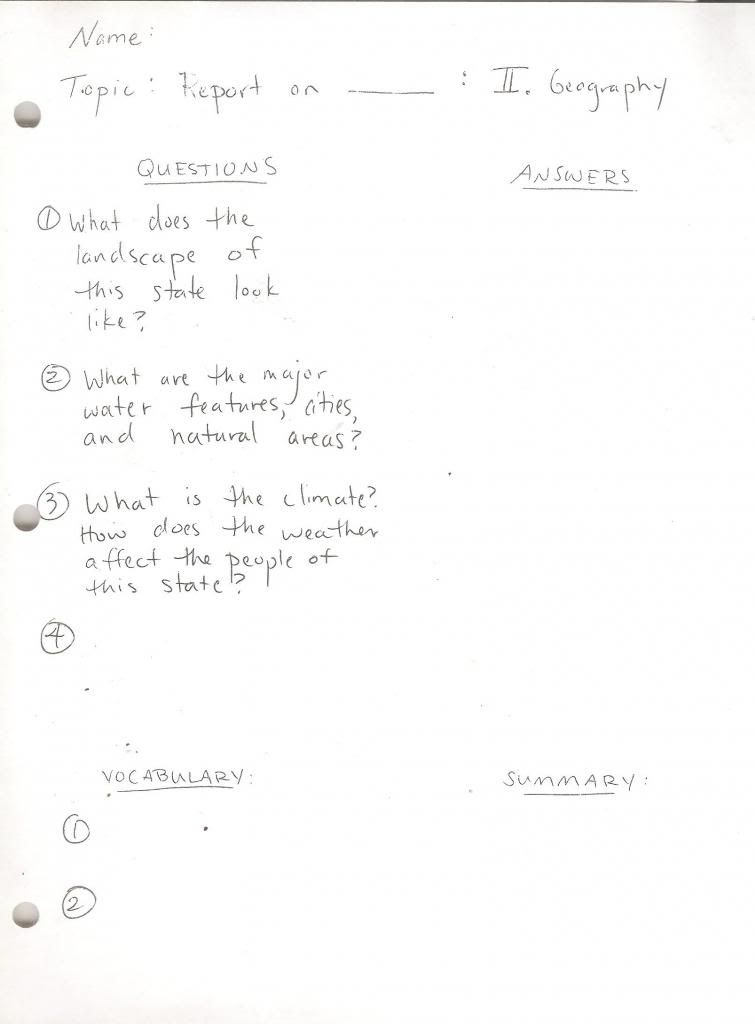 Name:
Topic: Report on ______ : II. Geography
QUESTIONS
ANSWERS
① What does the
landscape of
this state look
like?
② What are the major
water features, cities,
and natural areas?
③ What is the climate?
How does the weather
affect the people of
this state?
④
VOCABULARY:
SUMMARY:
①
②